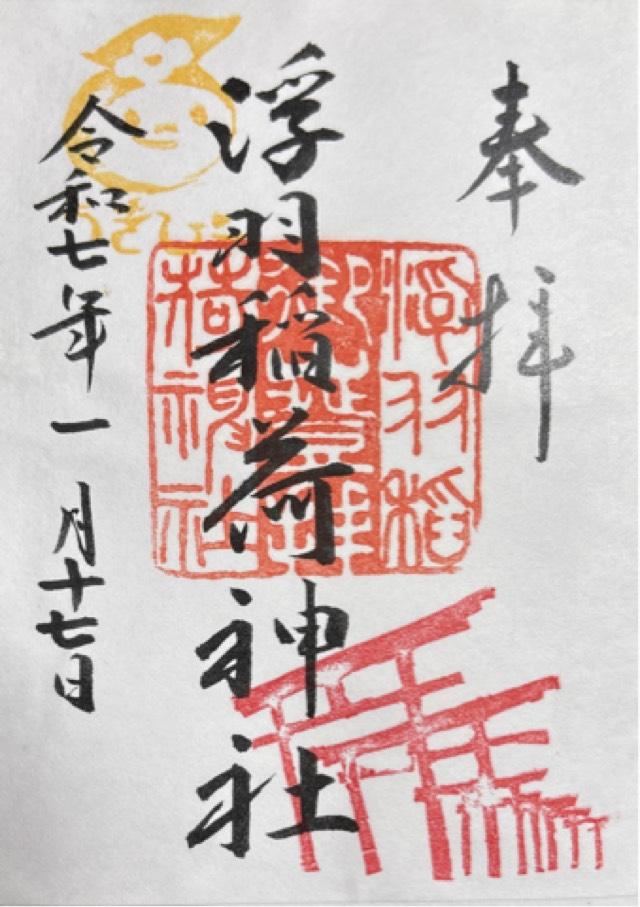 奉拝
浮羽稲荷神社
令和七年一月十七日
浮羽稲
荷神社